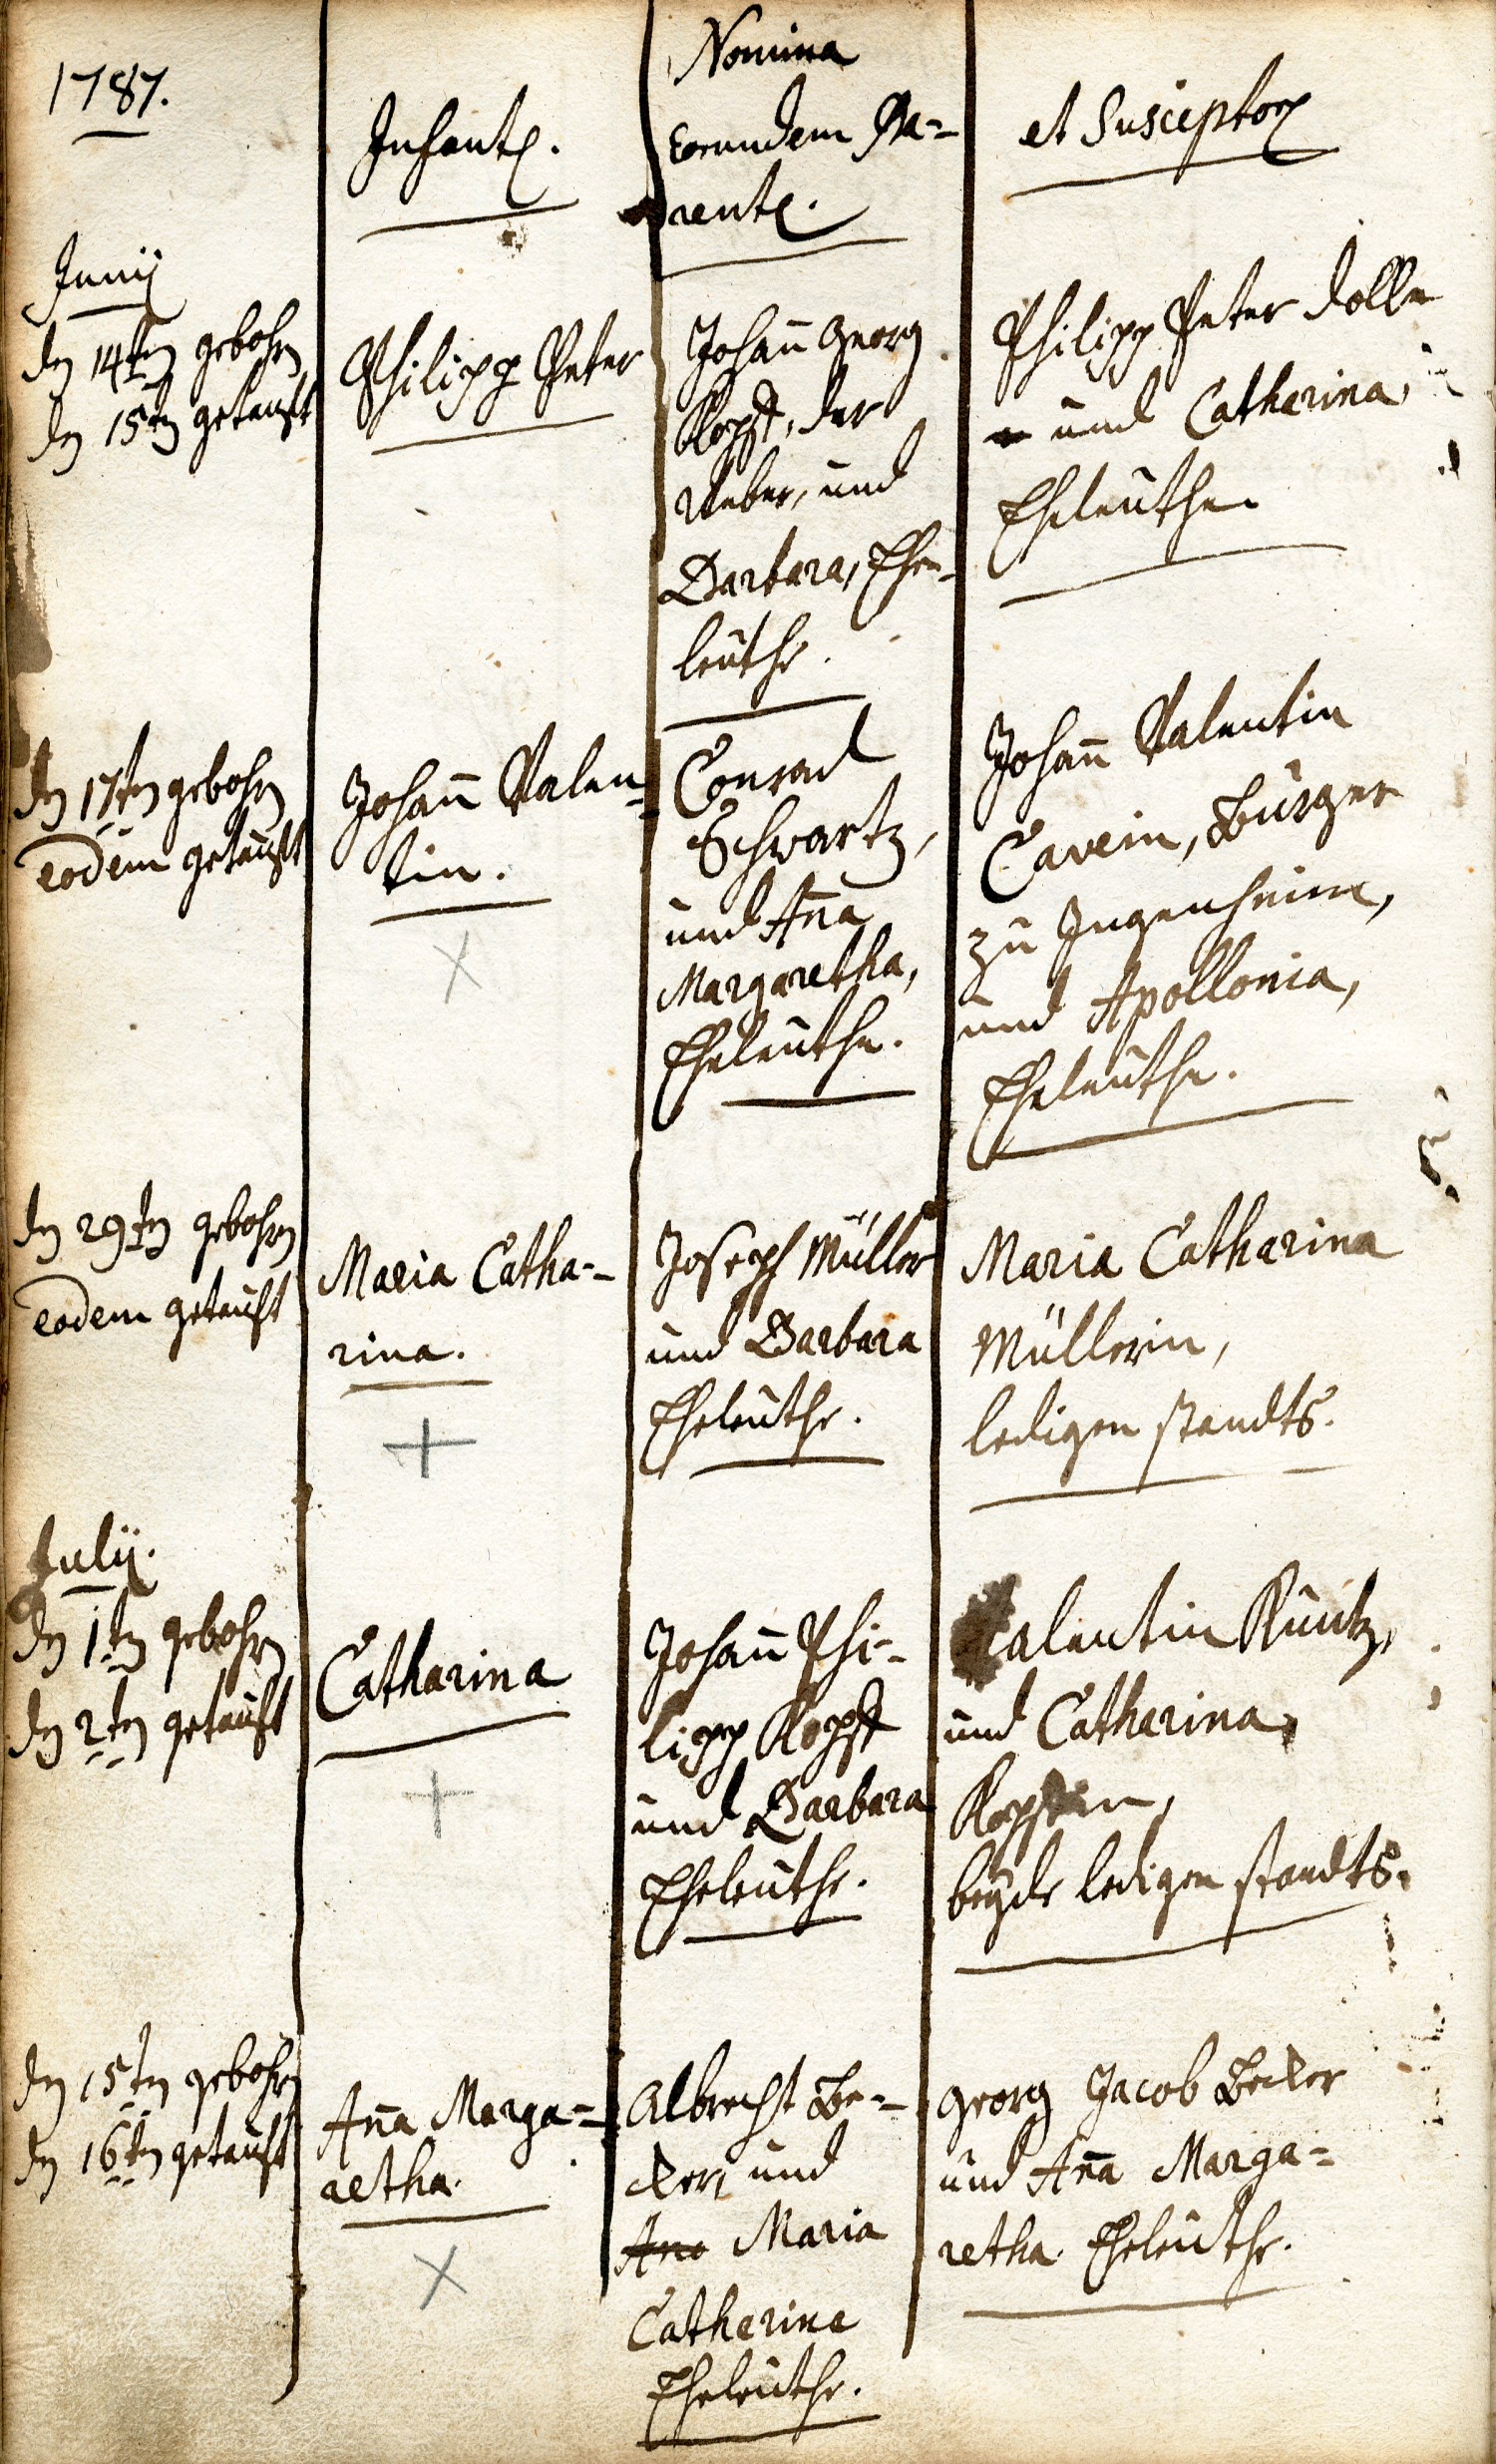 1787.
Nomina
Infantę.
Eorundem Pa=
rentę.
et Susceptorę
Junij
den 14ten gebohren
den 15ten getauft
Philipp Peter
Johañ Georg
Kopff, der
Weber, und
Barbara, Ehe-
leüthe.
Philipp Peter Doll
und Catharina,
Eheleüthe.
den 17ten gebohren
eodem getauft
Johañ Valen=
tin.
Conrad
Schwartz,
und Aña
Margaretha,
Eheleüthe.
Johañ Valentin
Cavein, Bürger
zu Jugenheim,
und Apollonia,
Eheleüthe.
den 29ten gebohren
eodem getauft
Maria Catha-
rina.
Joseph Müller
und Barbara
Eheleüthe.
Maria Catharina
Müllerin,
ledigen standts.
Julij.
den 1ten gebohren
den 2ten getauft
Catharina
Johañ Phi-
lipp Kopff
und Barbara
Eheleüthe.
Valentin Kuntz,
und Catharina,
Kopffin,
beyde ledigen standts.
den 15ten gebohren
den 16ten getauft
Aña Marga=
retha.
Albrecht Be-
cker, und
Maria
Catharina
Eheleüthe.
Georg Jacob Becker
und Aña Marga=
retha Eheleüthe.